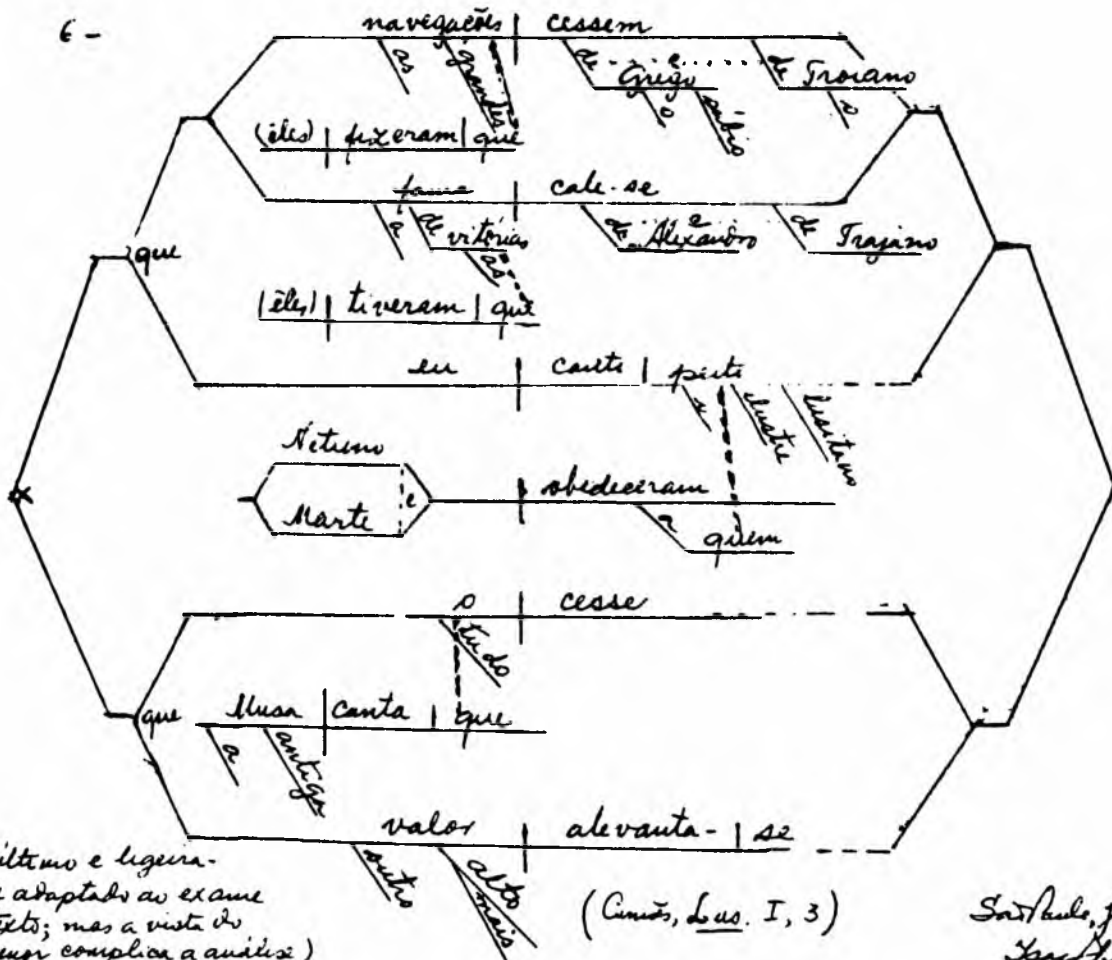 6 -
navegações | cessem
as grandes de Grego e de Troiano
o sábio o
(êles) | fizeram | que
fama | cale-se
a de vitórias de Alexandro e de Trajano
as
(êles) | tiveram | que
que
eu | cante | peito
o ilustre lusitano
Netuno
e | obedeceram
Marte
a quem
o | cesse
tudo
que Musa | canta | que
a antiga
valor | alevanta- | se
outro alto
mais
último e ligeira-
e adaptado ao exame
texto; mas a vista do
complica a análise)
(Camões, Lus. I, 3)
São Paulo,